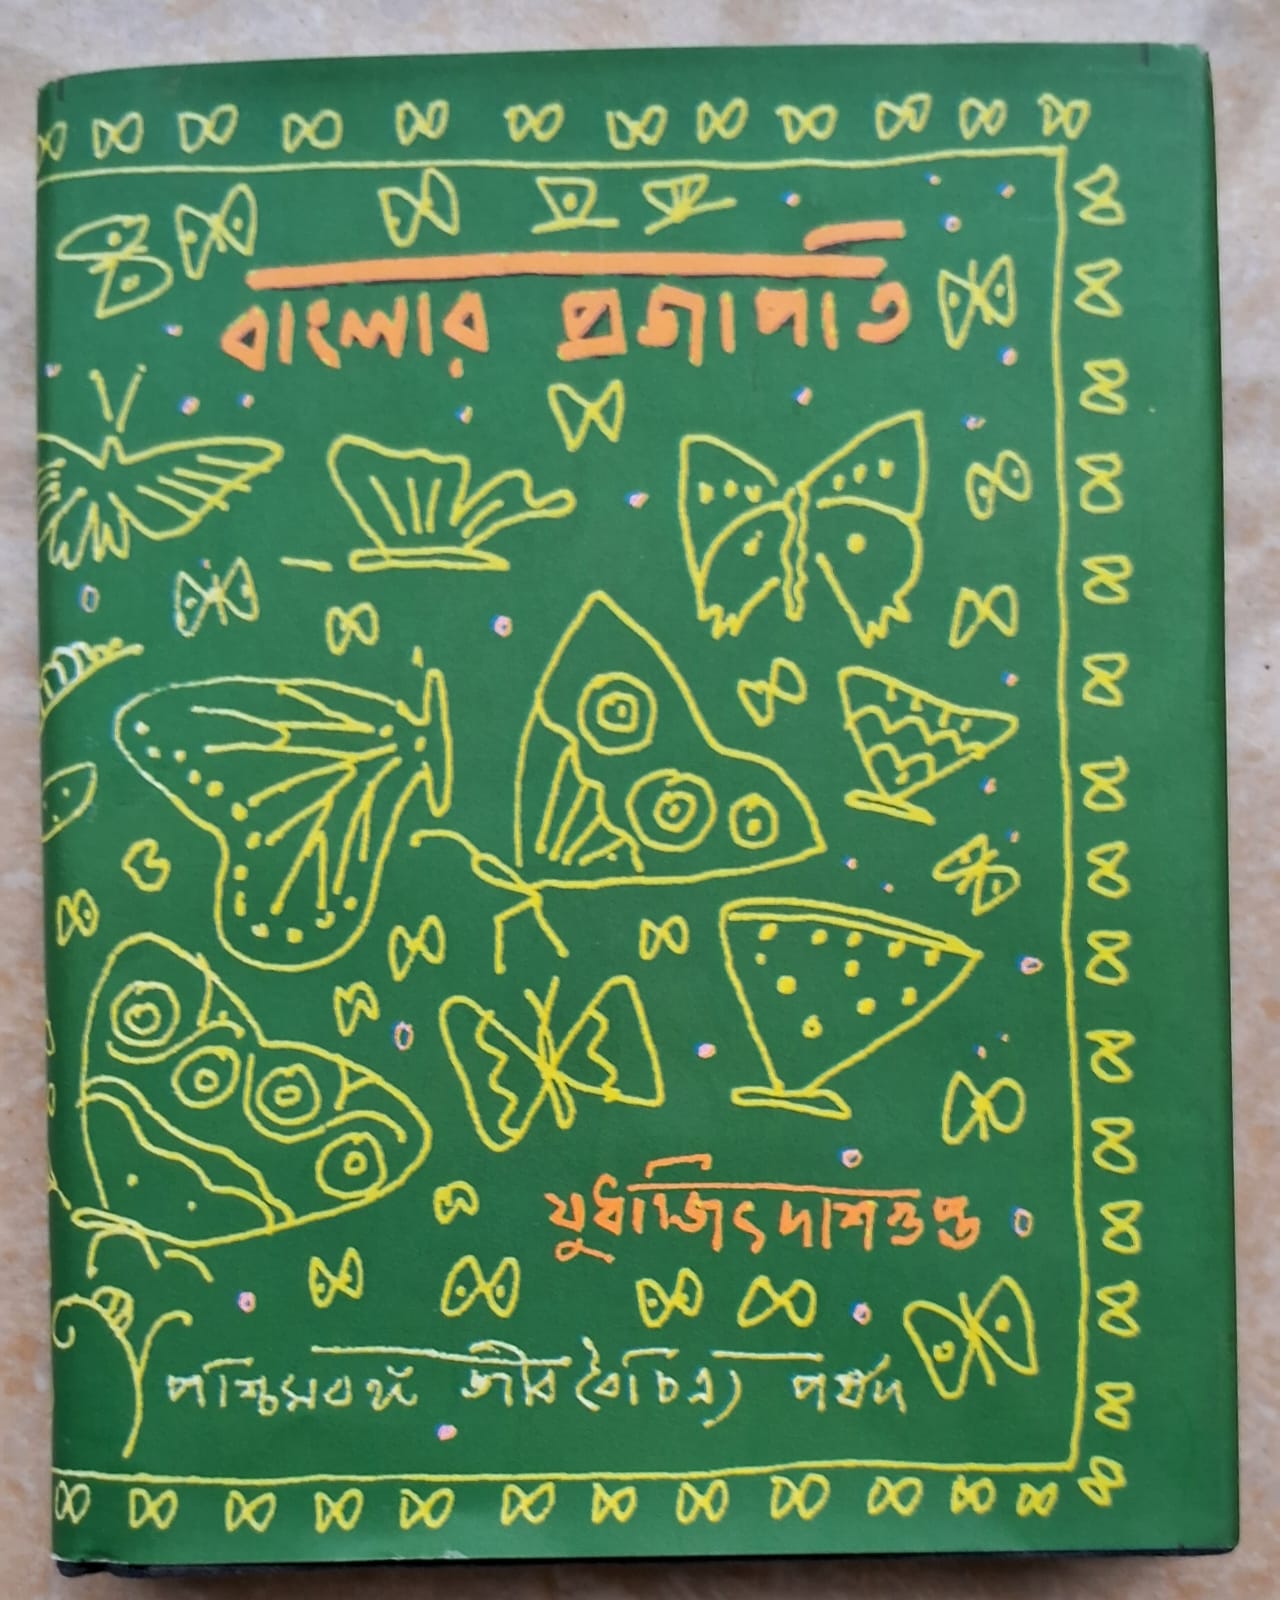 বাংলার প্রজাপতি
যুধাজিৎ দাশগুপ্ত
পশ্চিমবঙ্গ জীববৈচিত্র্য পর্ষদ